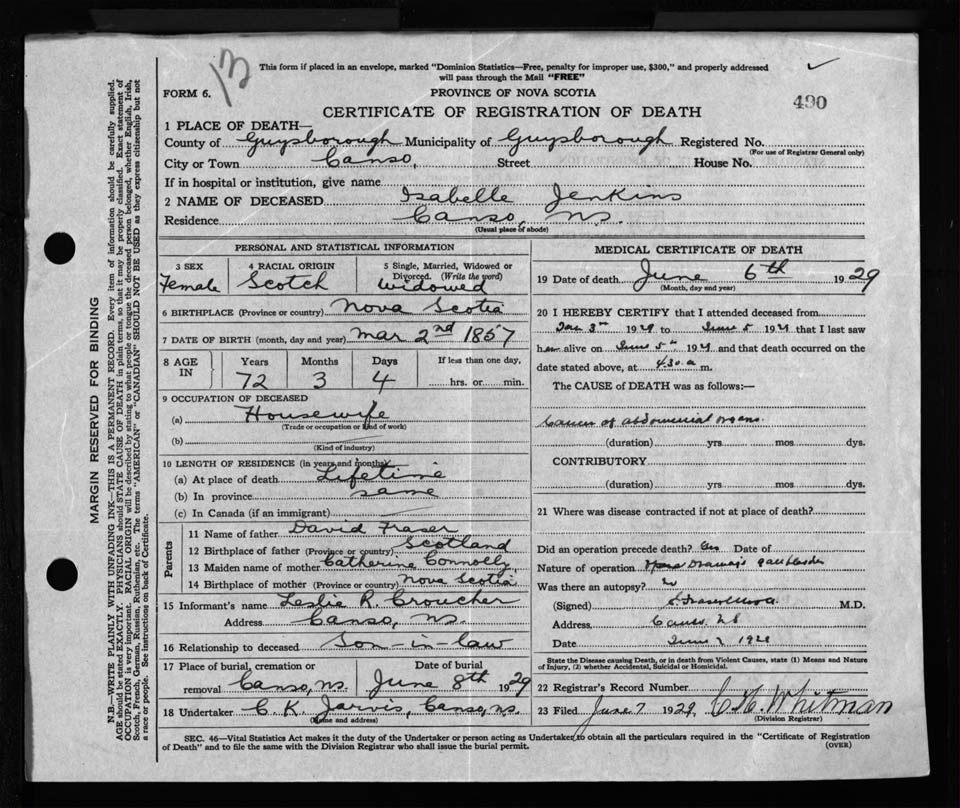 13
This form if placed in an envelope, marked "Dominion Statistics—Free, penalty for improper use, $300," and properly addressed
will pass through the Mail "FREE"
FORM 6.
PROVINCE OF NOVA SCOTIA
490
CERTIFICATE OF REGISTRATION OF DEATH
1 PLACE OF DEATH—
County of Guysborough Municipality of Guysborough Registered No.
(For use of Registrar General only)
City or Town Canso, Street House No.
If in hospital or institution, give name
2 NAME OF DECEASED Isabelle Jenkins
Residence Canso, N.S.
(Usual place of abode)
PERSONAL AND STATISTICAL INFORMATION
3 SEX 4 RACIAL ORIGIN 5 Single, Married, Widowed or
Divorced. (Write the word)
Female Scotch Widowed
6 BIRTHPLACE (Province or country) Nova Scotia
7 DATE OF BIRTH (month, day and year) Mar 2nd 1857
8 AGE IN Years Months Days If less than one day,
72 3 4 hrs. or min.
9 OCCUPATION OF DECEASED
(a) Housewife
(Trade or occupation or kind of work)
(b)
(Kind of industry)
10 LENGTH OF RESIDENCE (in years and months)
(a) At place of death Lifetime
(b) In province same
(c) In Canada (if an immigrant)
Parents
11 Name of father David Fraser
12 Birthplace of father (Province or country) Scotland
13 Maiden name of mother Catherine Connolly
14 Birthplace of mother (Province or country) Nova Scotia
15 Informant's name Leslie R. Croucher
Address Canso, N.S.
16 Relationship to deceased Son-in-law
17 Place of burial, cremation or Date of burial
removal Canso, N.S. June 8th 1929
18 Undertaker C. K. Jarvis, Canso, N.S.
(Name and address)
MEDICAL CERTIFICATE OF DEATH
19 Date of death June 6th 1929
(Month, day and year)
20 I HEREBY CERTIFY that I attended deceased from
Jan 3rd 1929 to June 5 1929 that I last saw
her alive on June 5th, 1929 and that death occurred on the
date stated above, at 4.30 a. m.
The CAUSE of DEATH was as follows:—
Cancer of abdominal organs.
(duration) yrs. mos. dys.
CONTRIBUTORY
(duration) yrs. mos. dys.
21 Where was disease contracted if not at place of death?
Did an operation precede death? Yes Date of
Nature of operation Drainage gall bladder
Was there an autopsy? No
(Signed) M.D.
Address, Canso, NS
Date June 7 1929
State the Disease causing Death, or in death from Violent Causes, state (1) Means and Nature
of Injury, (2) whether Accidental, Suicidal or Homicidal.
22 Registrar's Record Number
23 Filed June 7 1929 Whitman
(Division Registrar)
SEC. 46—Vital Statistics Act makes it duty of the Undertaker or person acting as Undertaker to obtain all the particulars required in the "Certificate of Registration
of Death" and to file the same with the Division Registrar who shall issue the burial permit.
(OVER)
MARGIN RESERVED FOR BINDING
N.B.—WRITE PLAINLY WITH UNFADING INK—THIS IS A PERMANENT RECORD. Every item of information should be carefully supplied.
AGE should be stated EXACTLY. PHYSICIANS should STATE CAUSE OF DEATH in plain terms, so that it may be properly classified. Exact statement of
OCCUPATION is very important. RACIAL ORIGIN will be described by stating to what people or tongue the deceased person belonged, whether English, Irish,
Scotch, French, German, Russian, Ruthenian, etc. The terms "AMERICAN" or "CANADIAN" SHOULD NOT BE USED as they express citizenship but not
a race or people. See instructions on back of Certificate.